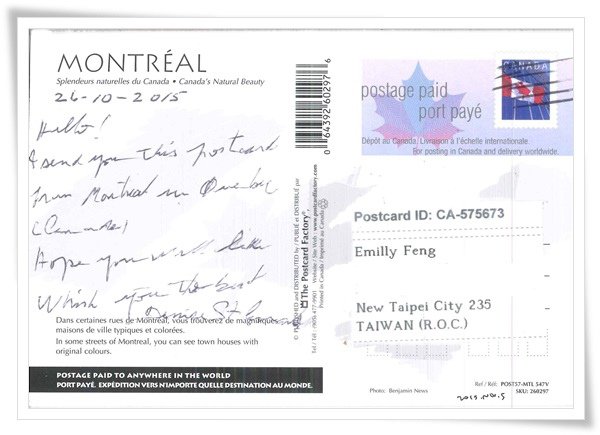 MONTRÉAL
Splendeurs naturelles du Canada • Canada's Natural Beauty
26-10-2015
Hello!
I send you this postcard
from Montreal in Quebec
(Canada)
Hope you will like
Whish you the best
Denise St
Dans certaines rues de Montréal, vous trouverez de magnifiques
maisons de ville typiques et colorées.
In some streets of Montreal, you can see town houses with
original colours.
POSTAGE PAID TO ANYWHERE IN THE WORLD
PORT PAYÉ. EXPÉDITION VERS N'IMPORTE QUELLE DESTINATION AU MONDE.
0 64392 60297 6
© PUBLISHED and DISTRIBUTED by / PUBLIÉ et DISTRIBUÉ par
The Postcard Factory
Tel / Tél (905) 477-9901 - Website / Site Web - www.postcardfactory.com
Printed in Canada / Imprimé au Canada
postage paid
port payé
CANADA
Dépôt au Canada, Livraison à l'échelle internationale.
For posting in Canada and delivery worldwide.
Postcard ID: CA-575673
Emilly Feng
New Taipei City 235
TAIWAN (R.O.C.)
Photo: Benjamin News
Ref / Réf: POST57-MTL 547V
SKU: 260297
2015.Nov.5